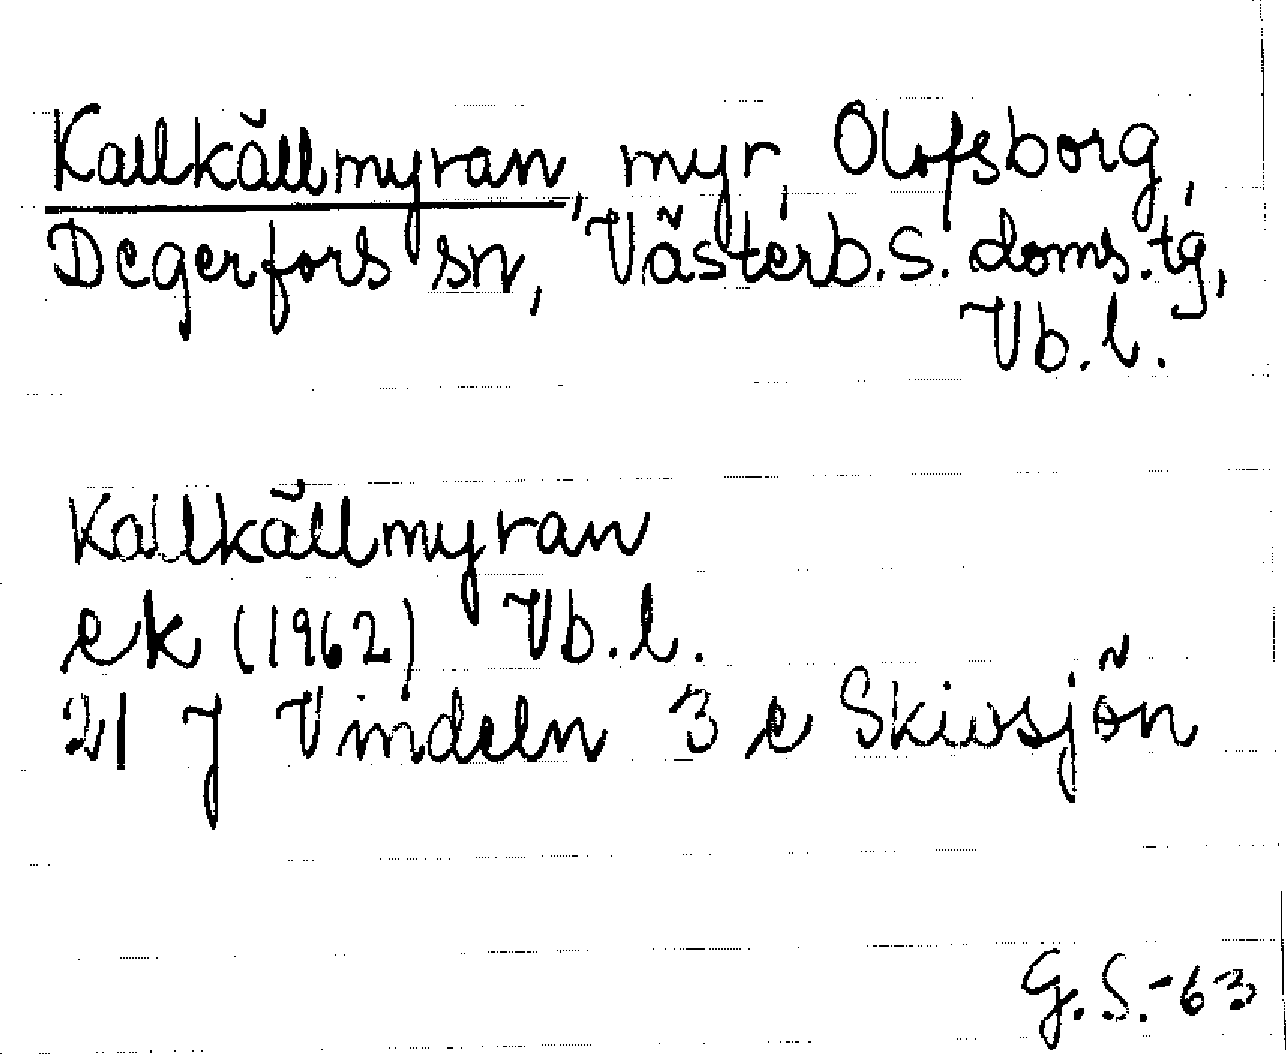 Kallkällmyran, myr, Olofsborg,
Degerfors sn, Västerb.s. doms.tg,
Vb.l.
Kallkällmyran
ek (1962) Vb.l.
21 J Vindeln 3 e Skivsjön
G.S.-63